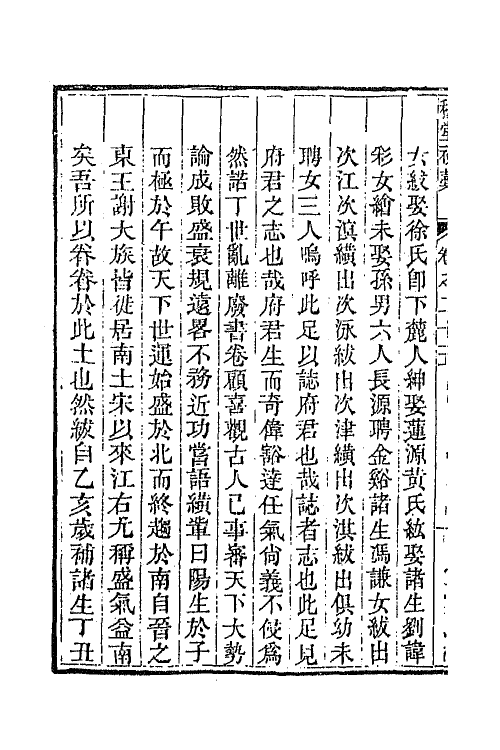 女紱娶徐氏卽下麓人紳娶蓮源黃氏紘娶諸生劉諱
彩女繪未娶孫男六人長源聘金谿諸生馮謙女紱出
次江次滇纉出次泳紱出次津纉出次淇紱出俱幼未
聘女三人嗚呼此足以誌府君也哉誌者志也此足見
府君之志也哉府君生而奇偉豁達任氣尙義不侵爲
然諾丁世亂離廢書卷顧喜觀古人已事審天下大勢
論成敗盛衰規遠畧不務近功嘗語纉輩曰陽生於子
而極於午故天下世運始盛於北而終趨於南自晉之
東王謝大族皆徙居南土宋以來江右尤稱盛氣益南
矣吾所以眷眷於此土也然紱自乙亥歲補諸生丁丑